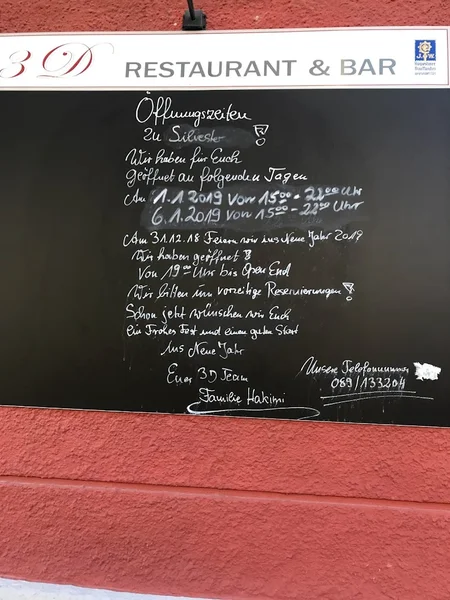 3 D RESTAURANT & BAR
Öffnungszeiten
zu Silvester !
Wir haben für Euch
geöffnet an folgenden Tagen
Am 1.1.2019 von 15⁰⁰ - 22⁰⁰ Uhr
6.1.2019 von 15⁰⁰ - 22⁰⁰ Uhr
Am 31.12.18 Feiern wir ins Neue Jahr 2019
Wir haben geöffnet !
Von 19⁰⁰ Uhr bis Open End
Wir bitten um vorzeitige Reservierungen !
Schon jetzt wünschen wir Euch
ein Frohes Fest und einen guten Start
ins Neue Jahr
Euer 3D Team
Familie Hakimi
Unsere Telefonnummer
089/133204